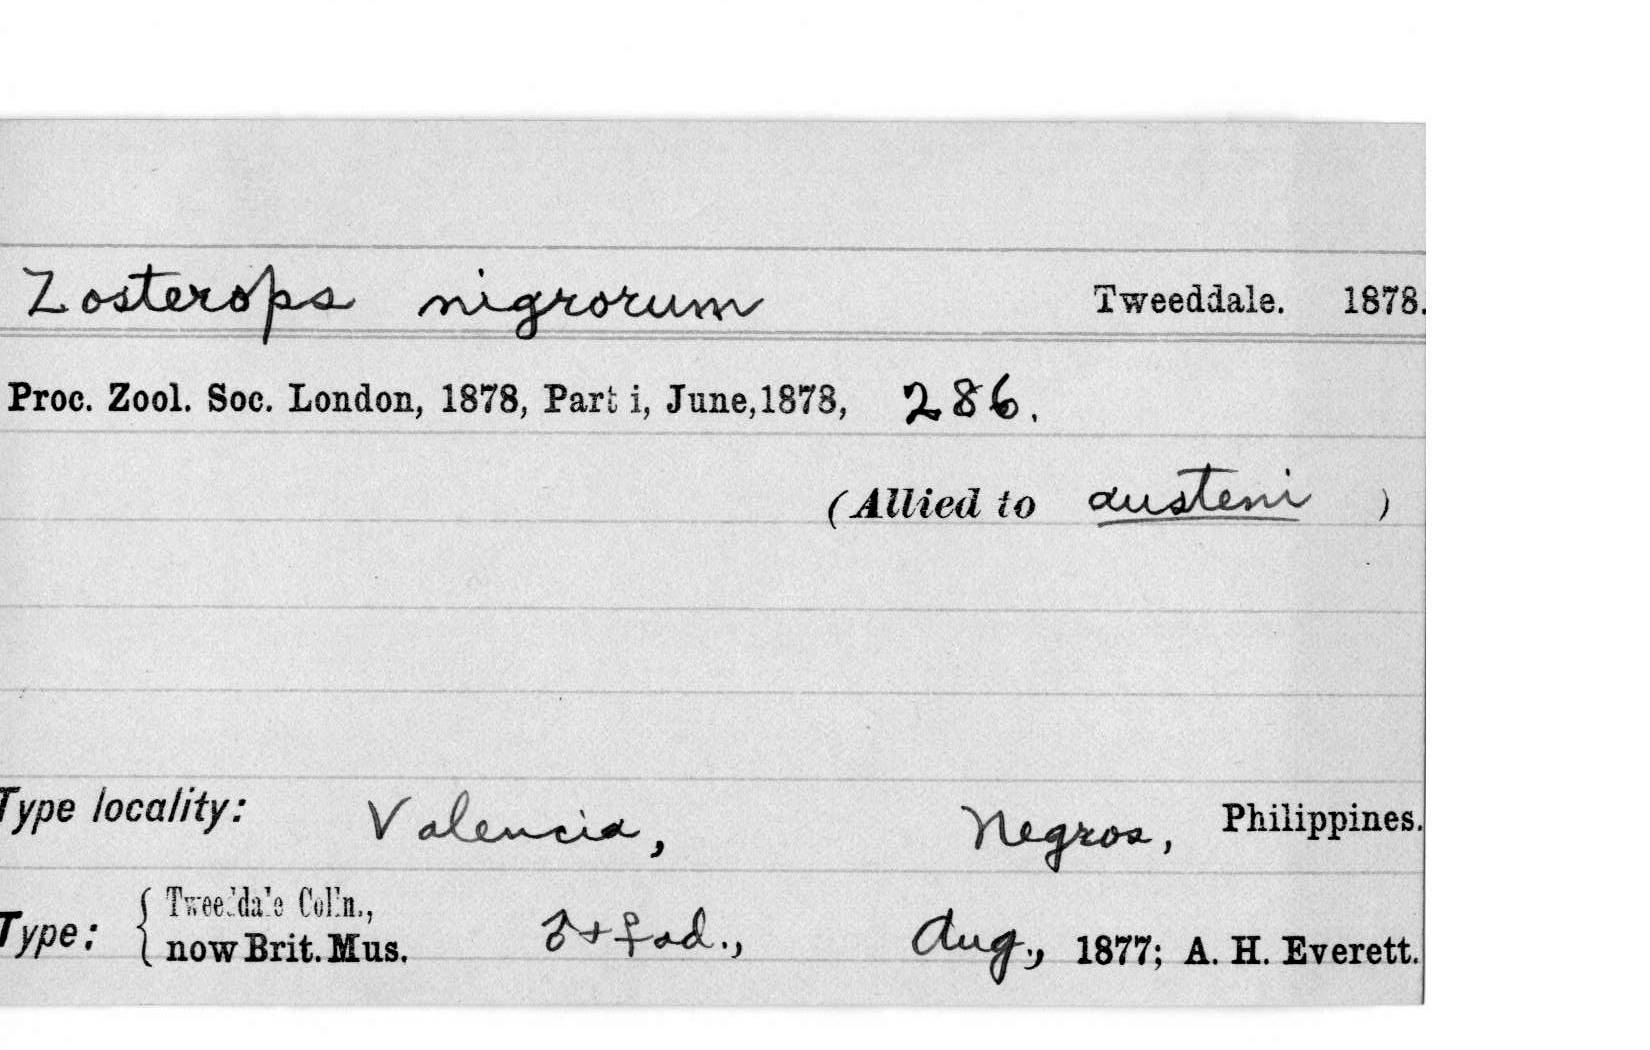 Zosterops nigrorum Tweeddale. 1878.
Proc. Zool. Soc. London, 1878, Part i, June, 1878, 286.
(Allied to austeni )
Type locality: Valencia, Negros, Philippines.
Type: { Tweeddale Colln.,
now Brit. Mus. ♂ + ♀ ad., Aug., 1877; A. H. Everett.